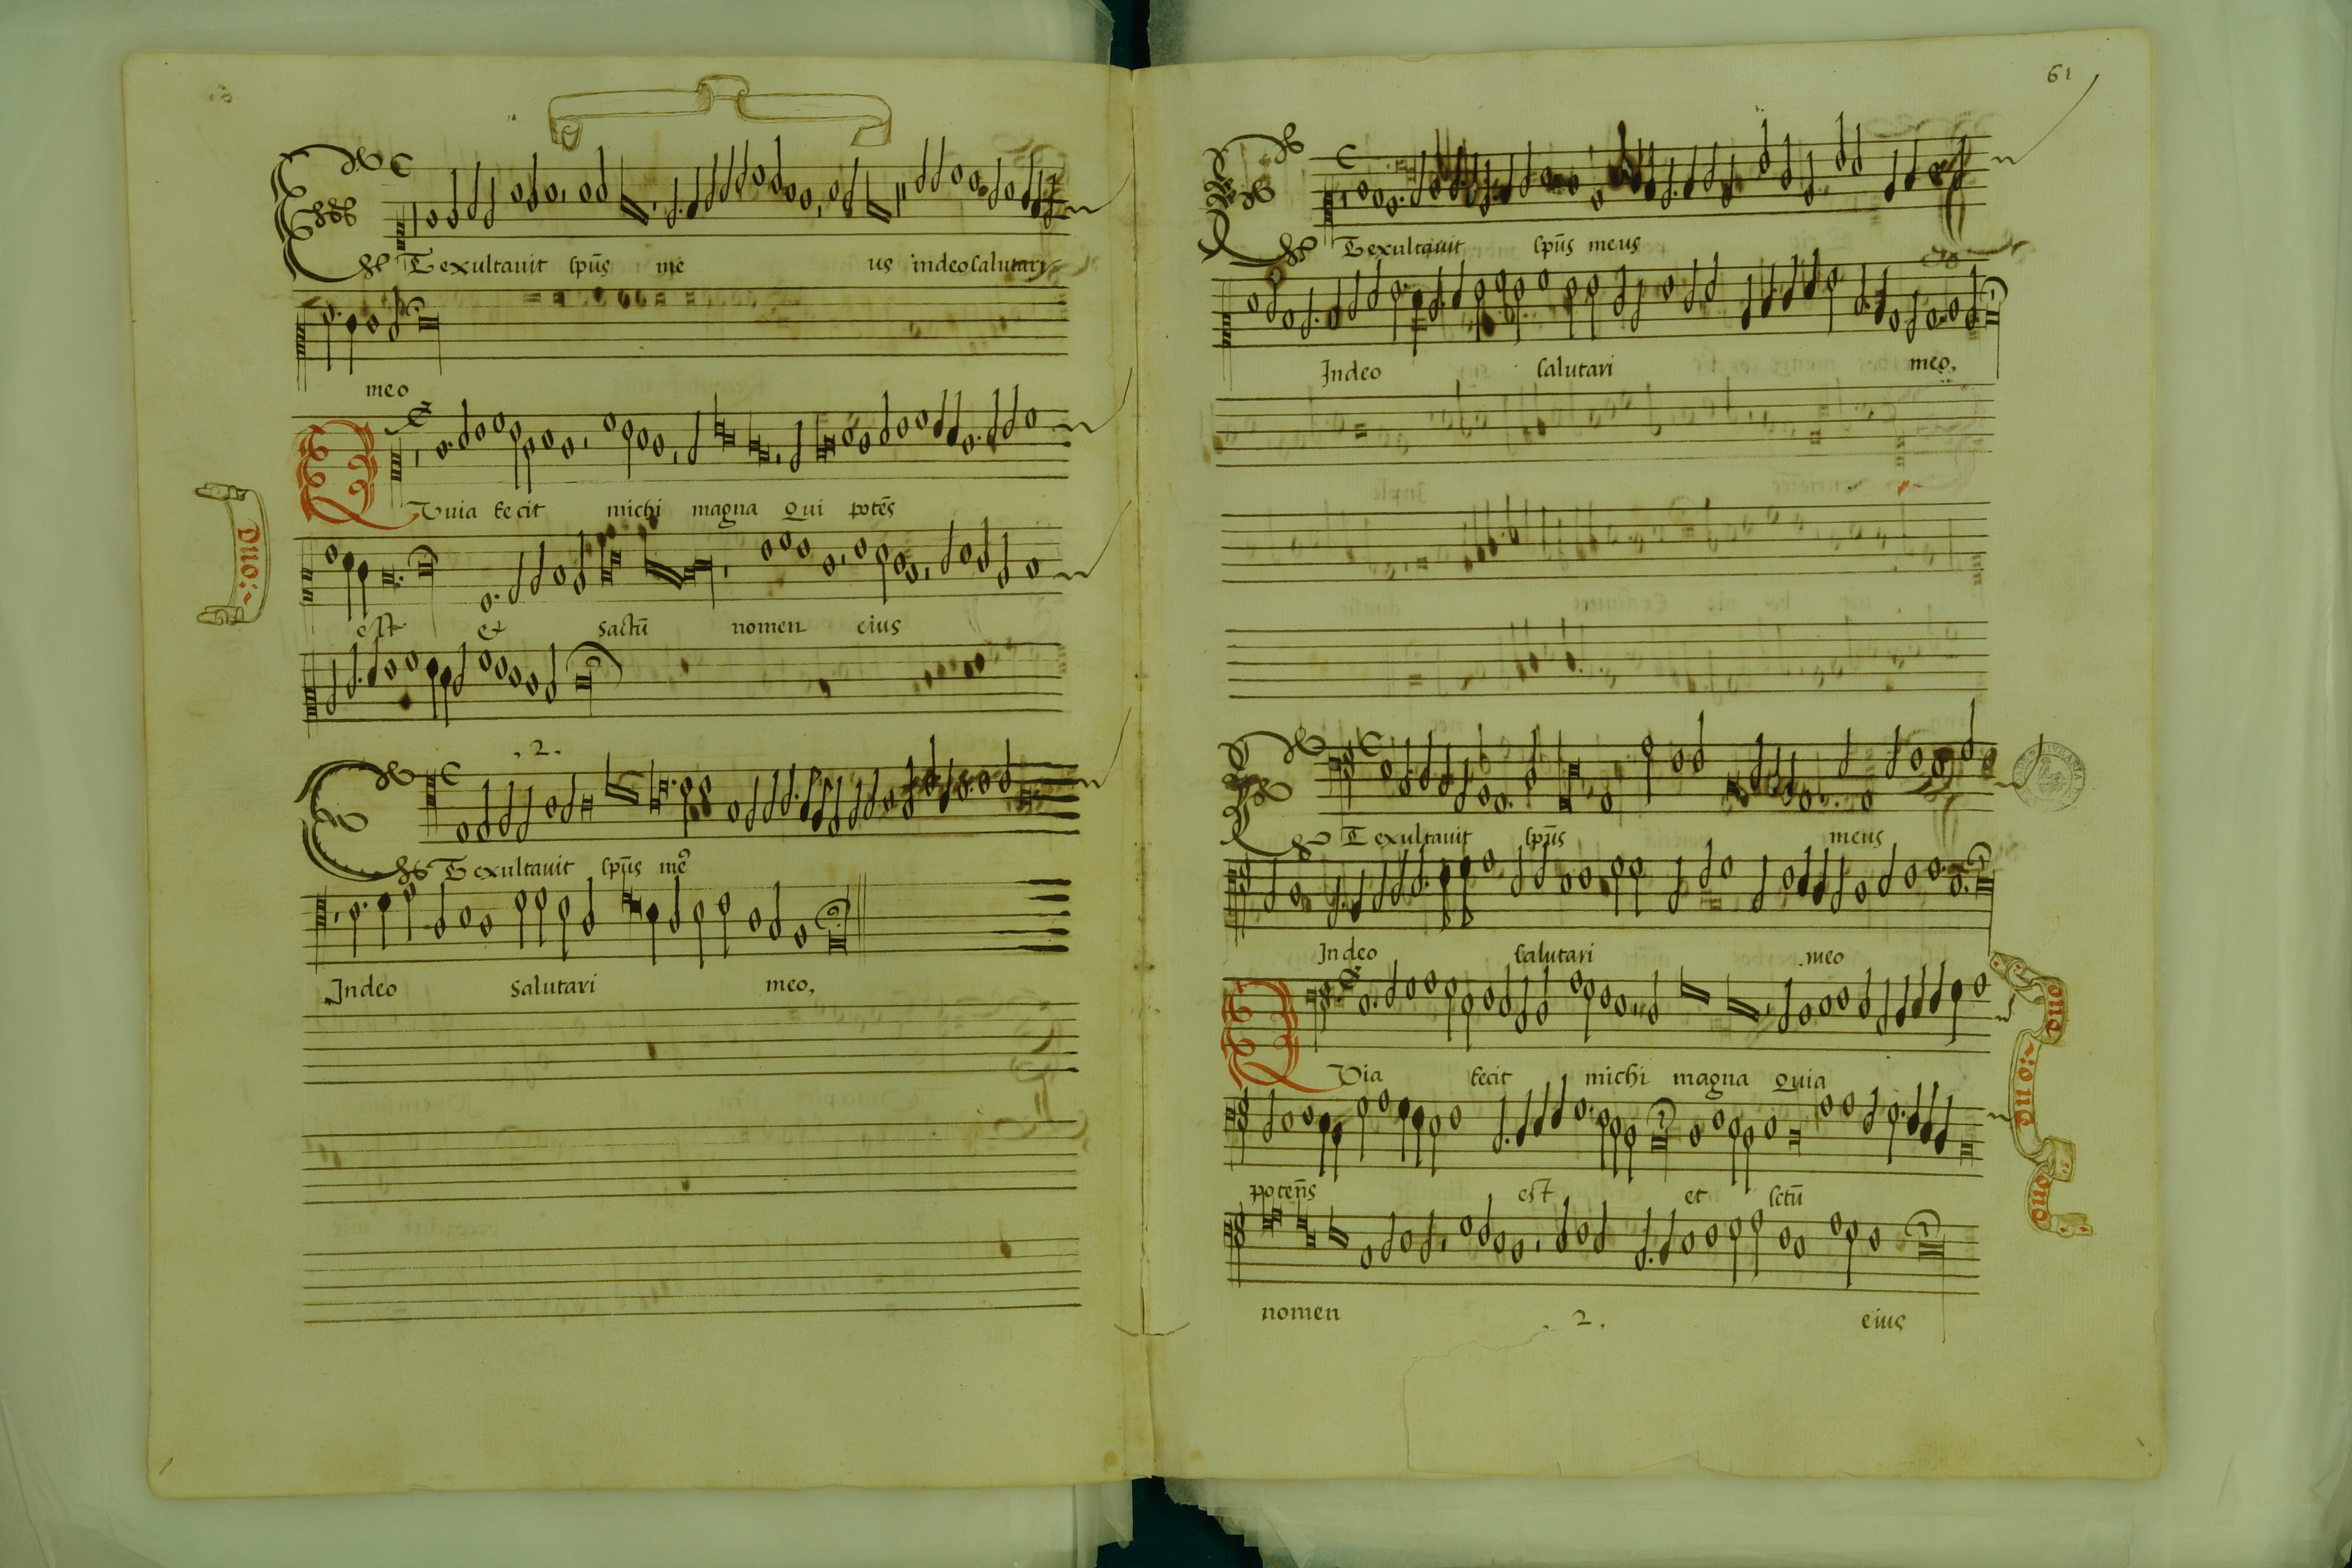 Et exultavit sp̄us me us indeo salutari
meo
Quia fecit michi magna qui potēs
Duo:~
est et sāctū nomen eius
.2.
Et exultavit sp̄us me9
Indeo salutari meo.
61
Et exultavit sp̄us meus
Indeo salutari meo.
Et exultavit sp̄us meus
Indeo salutari meo
Quia fecit michi magna quia
duo
duo:~
duo
poteñs est et sctū
nomen .2. eius